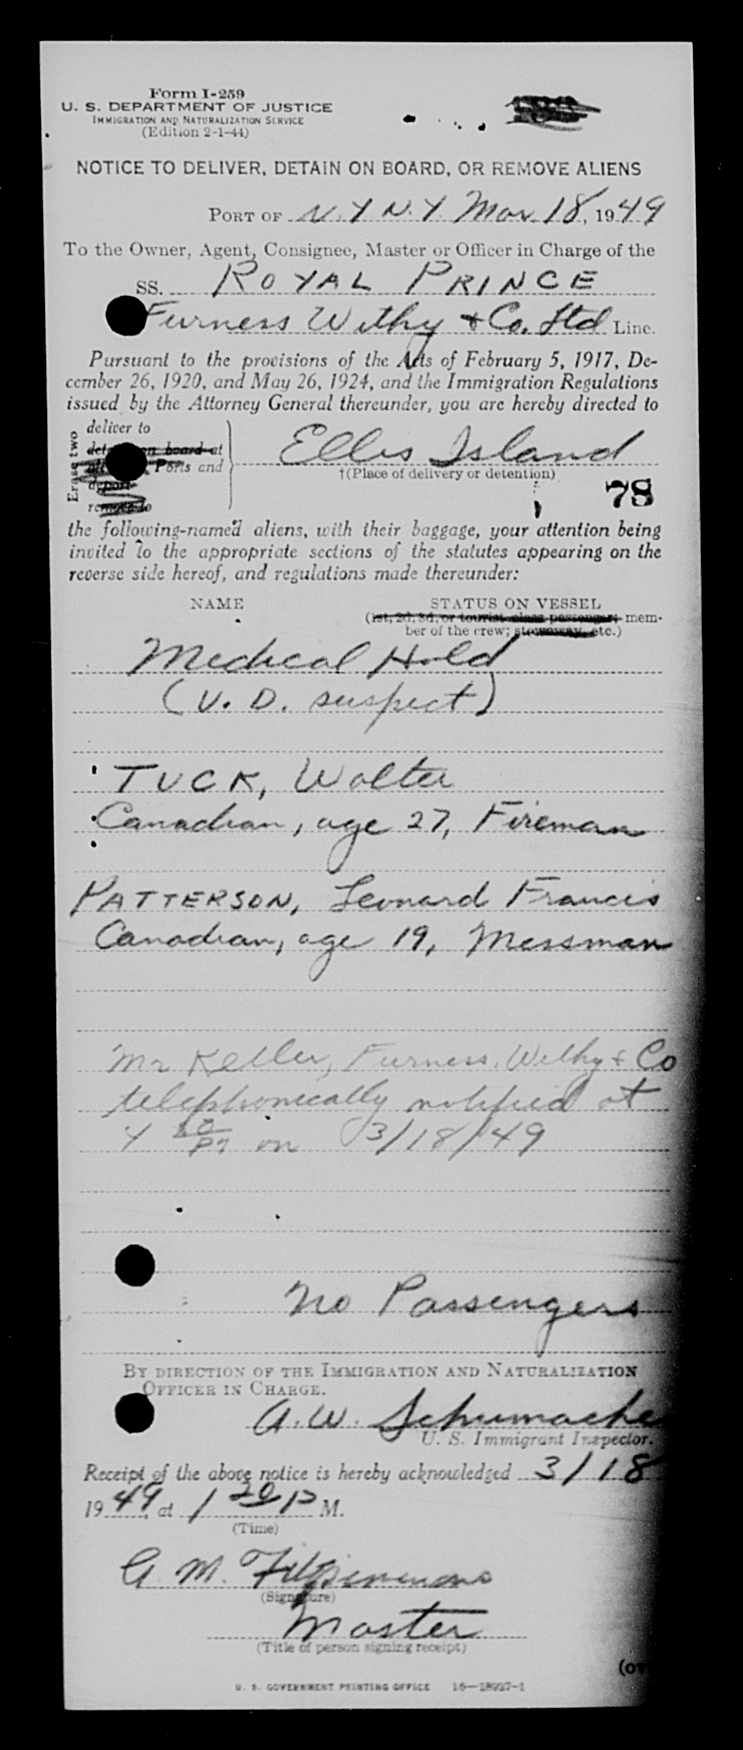 Form I-259
U. S. DEPARTMENT OF JUSTICE
IMMIGRATION AND NATURALIZATION SERVICE
(Edition 2-1-44)
NOTICE TO DELIVER, DETAIN ON BOARD, OR REMOVE ALIENS
PORT OF N.Y N.Y. Mar. 18, 1949
To the Owner, Agent, Consignee, Master or Officer in Charge of the
SS. ROYAL PRINCE
Furness Withy & Co. Ltd Line.
Pursuant to the provisions of the Acts of February 5, 1917, De-
cember 26, 1920, and May 26, 1924, and the Immigration Regulations
issued by the Attorney General thereunder, you are hereby directed to
Erase two
deliver to
on board at
Ports and
deport
remove to
Ellis Island
†(Place of delivery or detention)
78
the following-named aliens, with their baggage, your attention being
invited to the appropriate sections of the statutes appearing on the
reverse side hereof, and regulations made thereunder:
NAME STATUS ON VESSEL
(1st, 2d, 3d, or tourist class passenger; mem-
ber of the crew; stowaway, etc.)
Medical Hold
(V. D. suspect)
TUCK, Walter
Canadian, age 27, Fireman
PATTERSON, Leonard Francis
Canadian, age 19, Messman
Mr Keller, Furness, Withy & Co
telephonically notified at
on 3/18/49
No Passengers
BY DIRECTION OF THE IMMIGRATION AND NATURALIZATION
OFFICER IN CHARGE.
A. W. Schumache
U. S. Immigrant Inspector.
Receipt of the above notice is hereby acknowledged 3/18
1949, at 1 20 P M.
(Time)
G. M. Fitzsimmons
(Signature)
Master
(Title of person signing receipt)
(ov
U. S. GOVERNMENT PRINTING OFFICE 16—18927-1